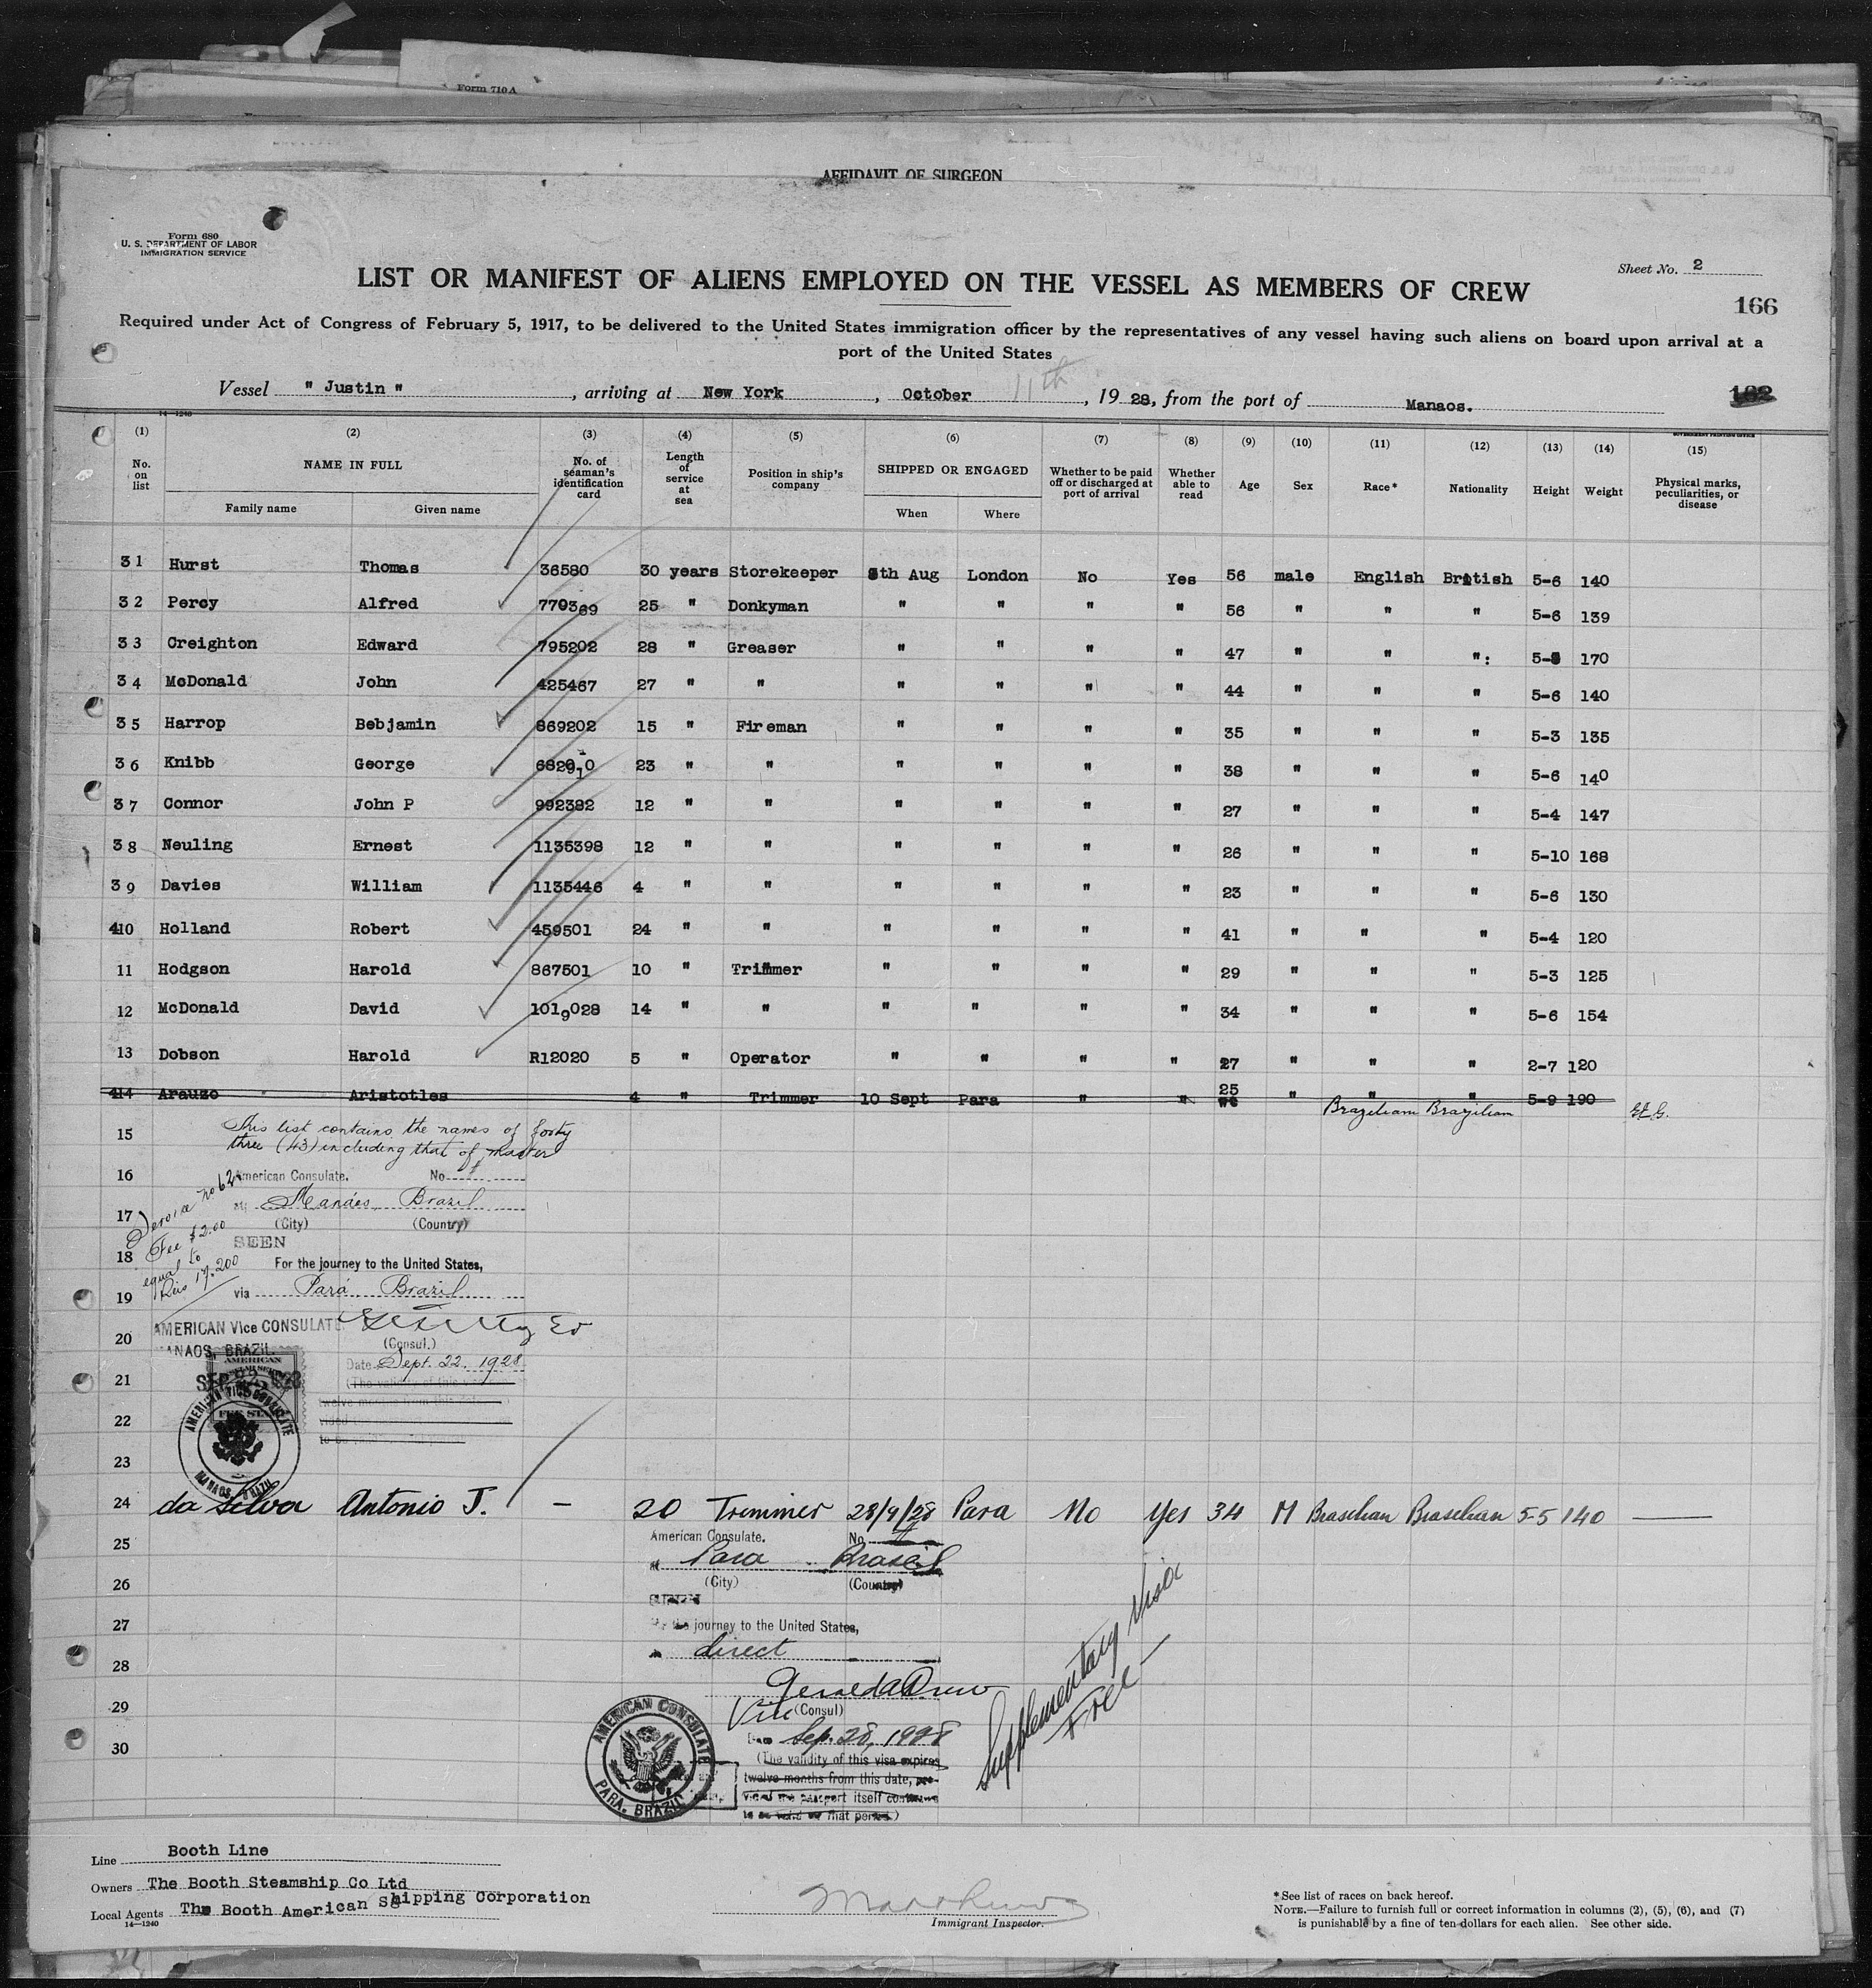 Form 710A
AFFIDAVIT OF SURGEON
Form 680
U. S. DEPARTMENT OF LABOR
IMMIGRATION SERVICE
Sheet No. 2
LIST OR MANIFEST OF ALIENS EMPLOYED ON THE VESSEL AS MEMBERS OF CREW
166
Required under Act of Congress of February 5, 1917, to be delivered to the United States immigration officer by the representatives of any vessel having such aliens on board upon arrival at a
port of the United States
Vessel " Justin " , arriving at New York , October 11th , 19 28, from the port of Manaos.
182
14—1240
GOVERNMENT PRINTING OFFICE
(1) (2) (3) (4) (5) (6) (7) (8) (9) (10) (11) (12) (13) (14) (15)
No. on list NAME IN FULL No. of seaman's identification card Length of service at sea Position in ship's company SHIPPED OR ENGAGED Whether to be paid off or discharged at port of arrival Whether able to read Age Sex Race* Nationality Height Weight Physical marks, peculiarities, or disease
Family name Given name When Where
31 Hurst Thomas 36580 30 years Storekeeper 8th Aug London No Yes 56 male English British 5-6 140
32 Percy Alfred 770369 25 " Donkyman " " " " 56 " " " 5-6 139
33 Creighton Edward 795202 28 " Greaser " " " " 47 " " ": 5- 170
34 McDonald John 425467 27 " " " " " " 44 " " " 5-6 140
35 Harrop Bebjamin 869202 15 " Fireman " " " " 35 " " " 5-3 135
36 Knibb George 682910 23 " " " " " " 38 " " " 5-6 140
37 Connor John P 992382 12 " " " " " " 27 " " " 5-4 147
38 Neuling Ernest 1135398 12 " " " " " " 26 " " " 5-10 168
39 Davies William 1135446 4 " " " " " " 23 " " " 5-6 130
410 Holland Robert 459501 24 " " " " " " 41 " " " 5-4 120
11 Hodgson Harold 867501 10 " Trimmer " " " " 29 " " " 5-3 125
12 McDonald David 1019028 14 " " " " " " 34 " " " 5-6 154
13 Dobson Harold R12020 5 " Operator " " " " 27 " " " 2-7 120
414 Arauzo Aristotles 4 " Trimmer 10 Sept Para " " 25 " " " 5-9 190
Brazilian Brazilian
15 This list contains the names of forty
three (43) including that of master
16 American Consulate. No
Service No 62
17 at Manáos, Brazil
(City) (Country)
Fee $2.00
18 SEEN
equal to
For the journey to the United States,
Reis 17.200
19 via Pará, Brazil
20 AMERICAN Vice CONSULATE
(Consul.)
MANAOS, BRAZIL.
Date Sept. 22, 1928
21 SEP 22 1928
AMERICAN
FEE STAMP
AMERICAN VICE CONSULATE
MANAOS, BRAZIL
22
23
24 da Silva Antonio J. — 20 Trimmer 28/9/28 Para No Yes 34 M Brasilian Brasilian 5-5 140
25 American Consulate. No
at Para Brasil
26 (City) (Country)
SEEN
27 For the journey to the United States,
direct
28
Gerald A Drew
29 Vice (Consul)
Date Sep. 28, 1928
30 (The validity of this visa expires
twelve months from this date, pro-
vided the passport itself continues
to be valid for that period.)
AMERICAN CONSULATE
PARA, BRAZIL
Supplementary Visa
Free
Line Booth Line
Owners The Booth Steamship Co Ltd
Local Agents The Booth American Shipping Corporation
14—1240
Immigrant Inspector.
*See list of races on back hereof.
NOTE.—Failure to furnish full or correct information in columns (2), (5), (6), and (7)
is punishable by a fine of ten dollars for each alien. See other side.